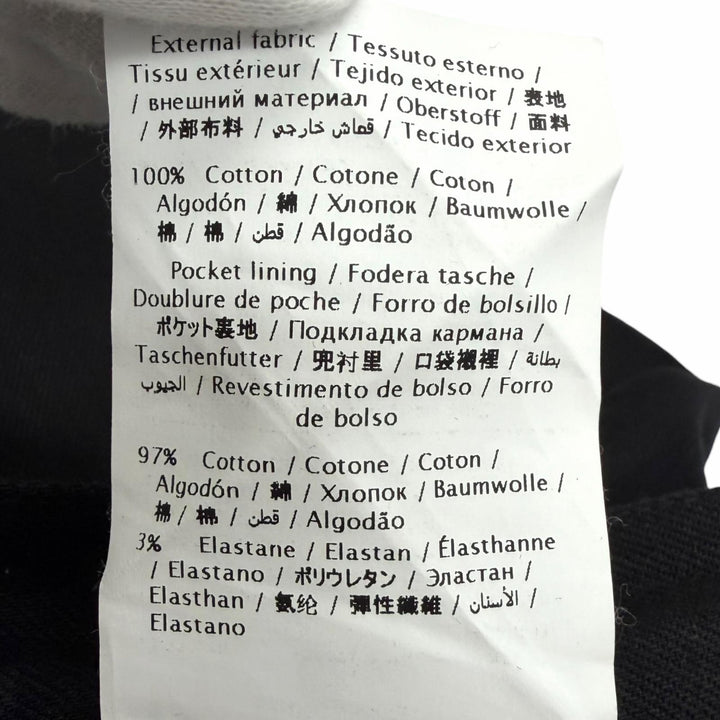 External fabric / Tessuto esterno /
Tissu extérieur / Tejido exterior / 表地
/ внешний материал / Oberstoff / 面料
/ 外部布料 / قماش خارجي / Tecido exterior
100% Cotton / Cotone / Coton /
Algodón / 綿 / Хлопок / Baumwolle /
棉 / 棉 / قطن / Algodão
Pocket lining / Fodera tasche /
Doublure de poche / Forro de bolsillo /
ポケット裏地 / Подкладка кармана /
Taschenfutter / 兜衬里 / 口袋襯裡 / بطانة
الجيوب / Revestimento de bolso / Forro
de bolso
97% Cotton / Cotone / Coton /
Algodón / 綿 / Хлопок / Baumwolle /
棉 / 棉 / قطن / Algodão
3% Elastane / Elastan / Élasthanne
/ Elastano / ポリウレタン / Эластан /
Elasthan / 氨纶 / 彈性纖維 / الأسنان /
Elastano